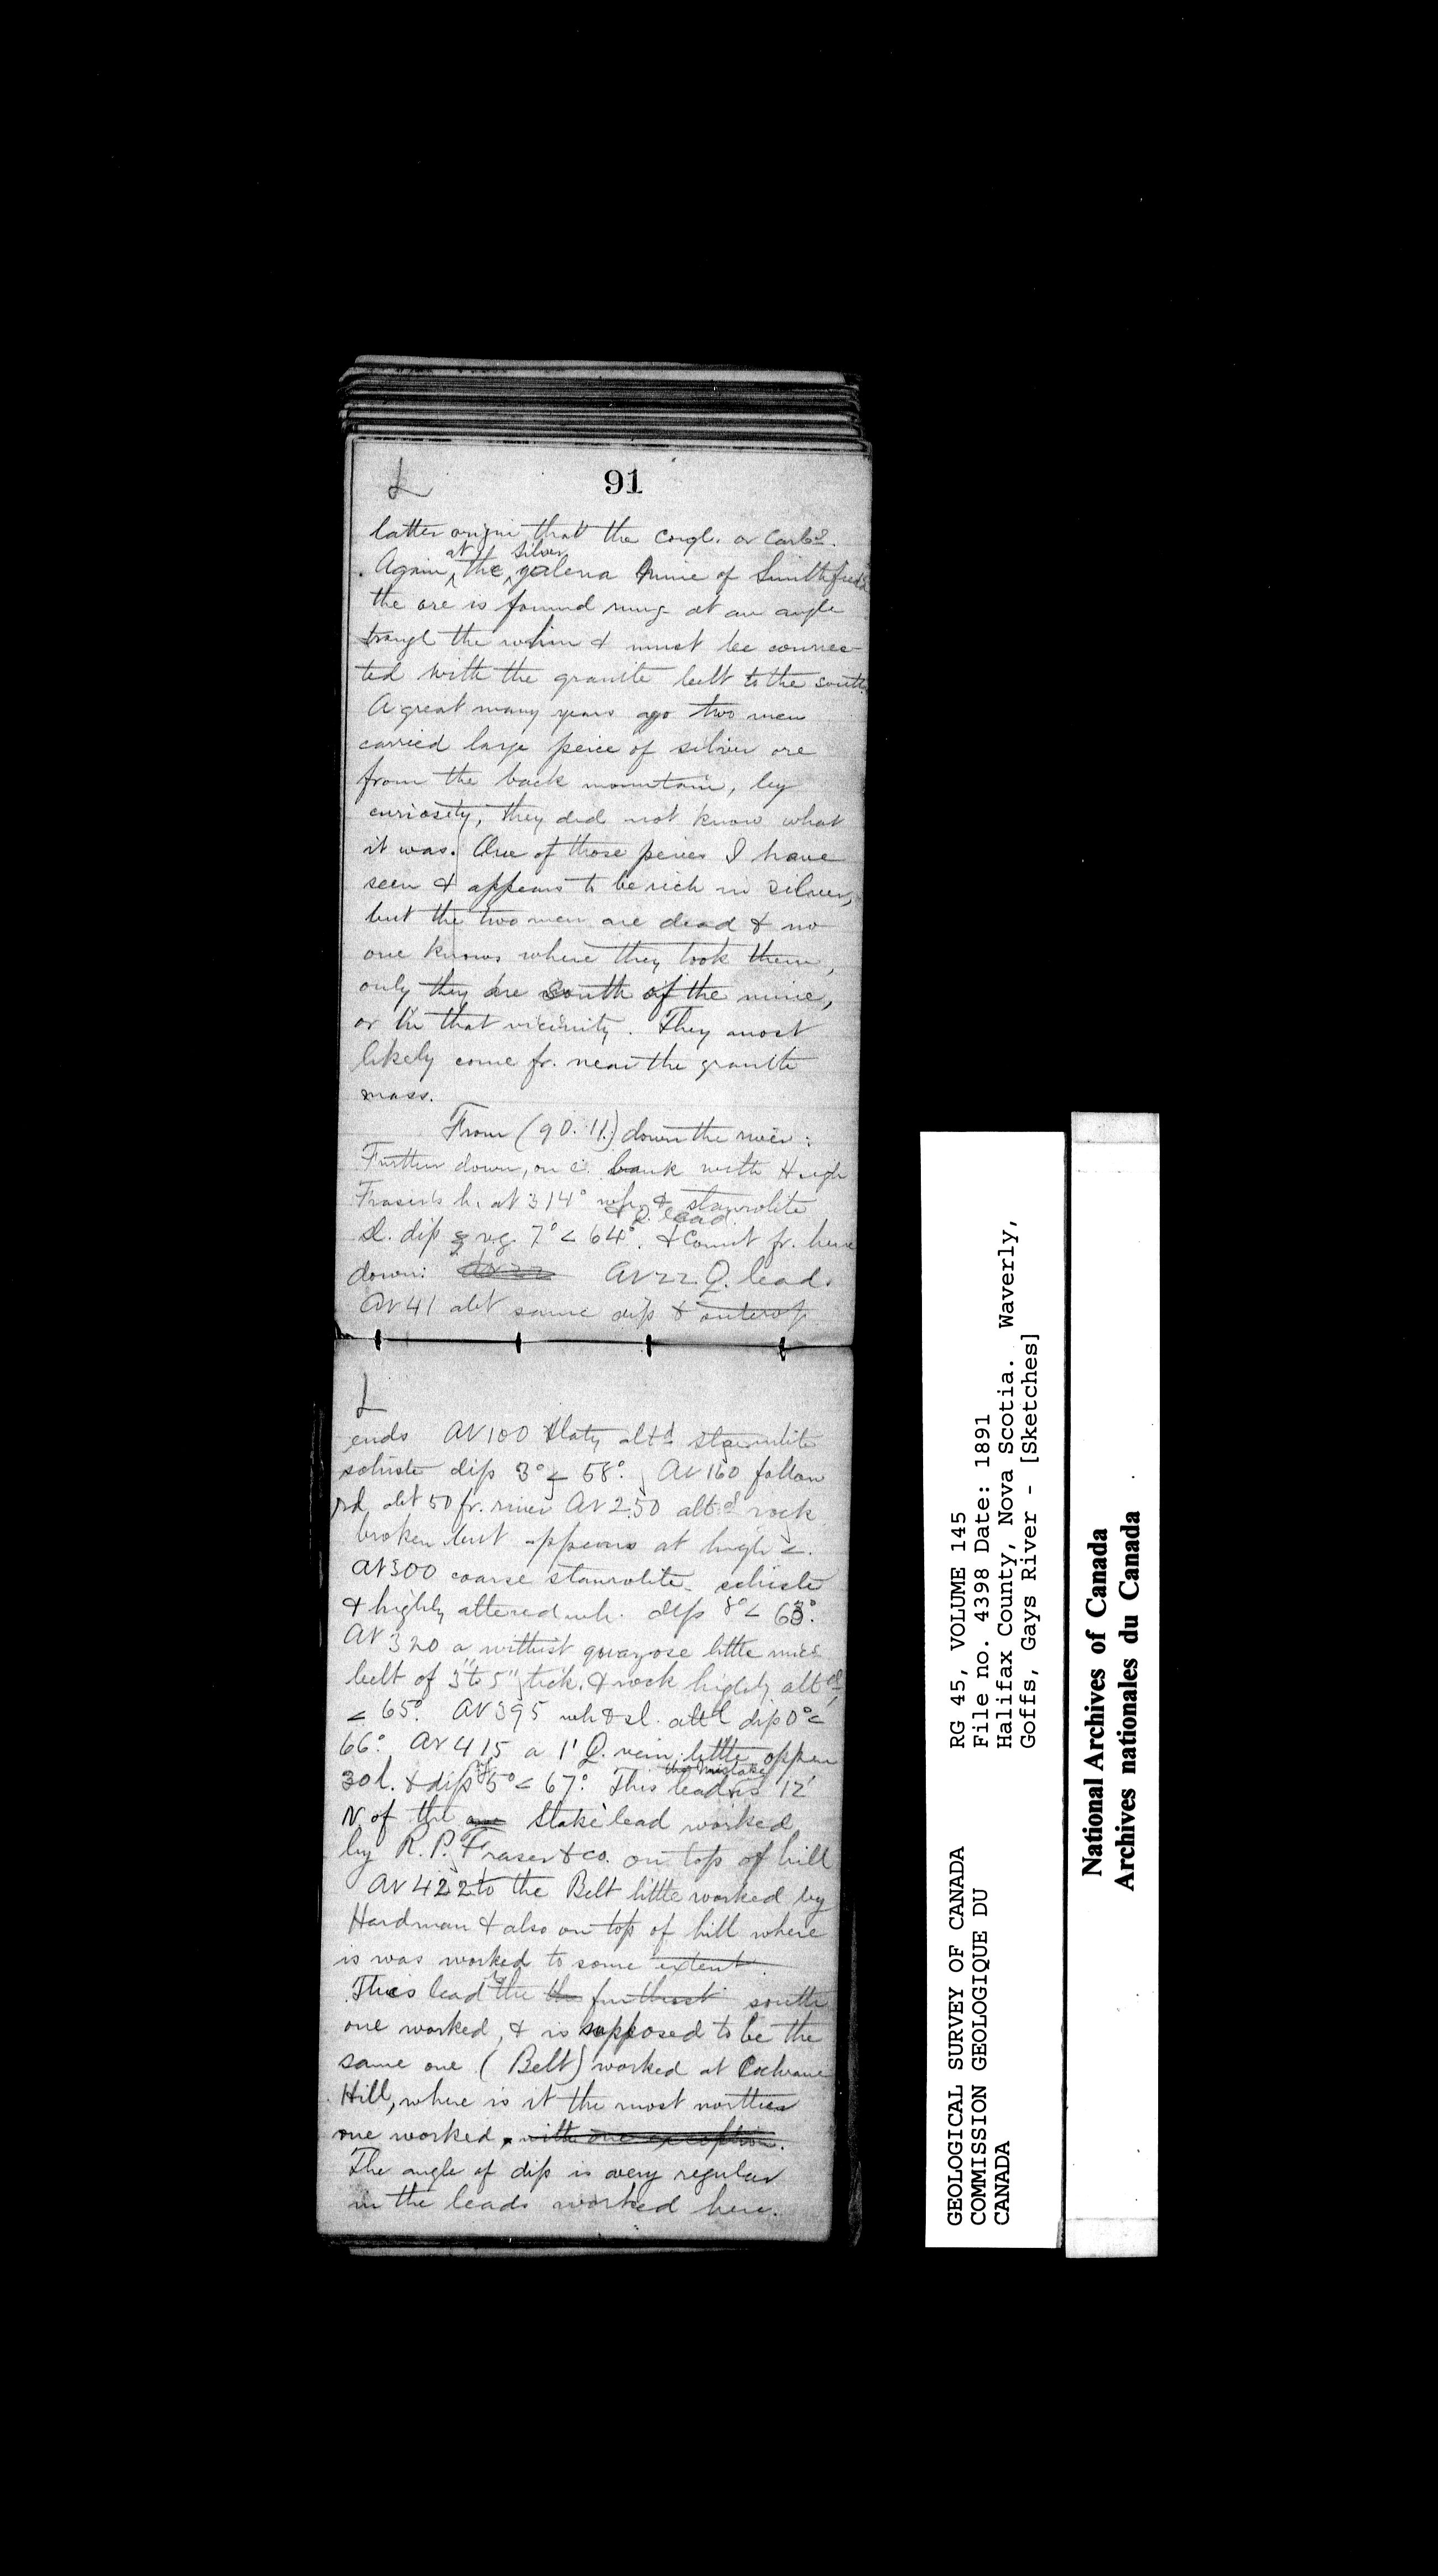 L
91
latter origin that the congl. or Carbs.
Again at the silver galena mine of Smithfield
the ore is found rung at an angle
trough the whin & must be connec-
ted with the granite belt to the south
A great many years ago two men
carried large peice of silver ore
from the back mountain, by
curiosity, they did not know what
it was. One of those peices I have
seen & appears to be rich in silver,
but the two men are dead & no
one knows where they took them,
only they are south of the mine,
or in that vicinity. They most
likely come fr. near the granite
mass.
From (90.11.) down the river:
Further down, on c. bank with Hugh
Fraser's h. at 314° wh. & staurolite
& Q. lead.
sl. dip & vg. 7° < 64°. & Count fr. here
down: At 22 At 22 Q. lead.
At 41 abt same dip & outcrop
L
ends At 100 slaty altd staurolite
schiste dip 3° < 58°. At 160 follow
rd abt 50 fr. river At 250 altd rock
broken but appears at high <.
At 300 coarse staurolite schiste
& highly altered wh. dip 8° < 63°.
At 320 a quarzose little mica
belt of 3 to 5" tick. & rock highly altd
< 65°. At 395 wh & sl. altd dip 0° <
66°. At 415 a 1' Q. vein little oppen
30 l. & dip 5° < 67°. This lead is 12'
N of the Stake lead worked
by R. P. Fraser & co. on top of hill
At 422 to the Belt little worked by
Hardman & also on top of hill where
is was worked to some extent.
This lead the the furthest south
one worked, & is supposed to be the
same one (Belt) worked at Cochrane
Hill, where is it the most northern
one worked, with one exception.
The angle of dip is very regular
in the leads worked here.
GEOLOGICAL SURVEY OF CANADA
COMMISSION GEOLOGIQUE DU
CANADA
RG 45, VOLUME 145
File no. 4398 Date: 1891
Halifax County, Nova Scotia. Waverly,
Goffs, Gays River - [Sketches]
National Archives of Canada
Archives nationales du Canada